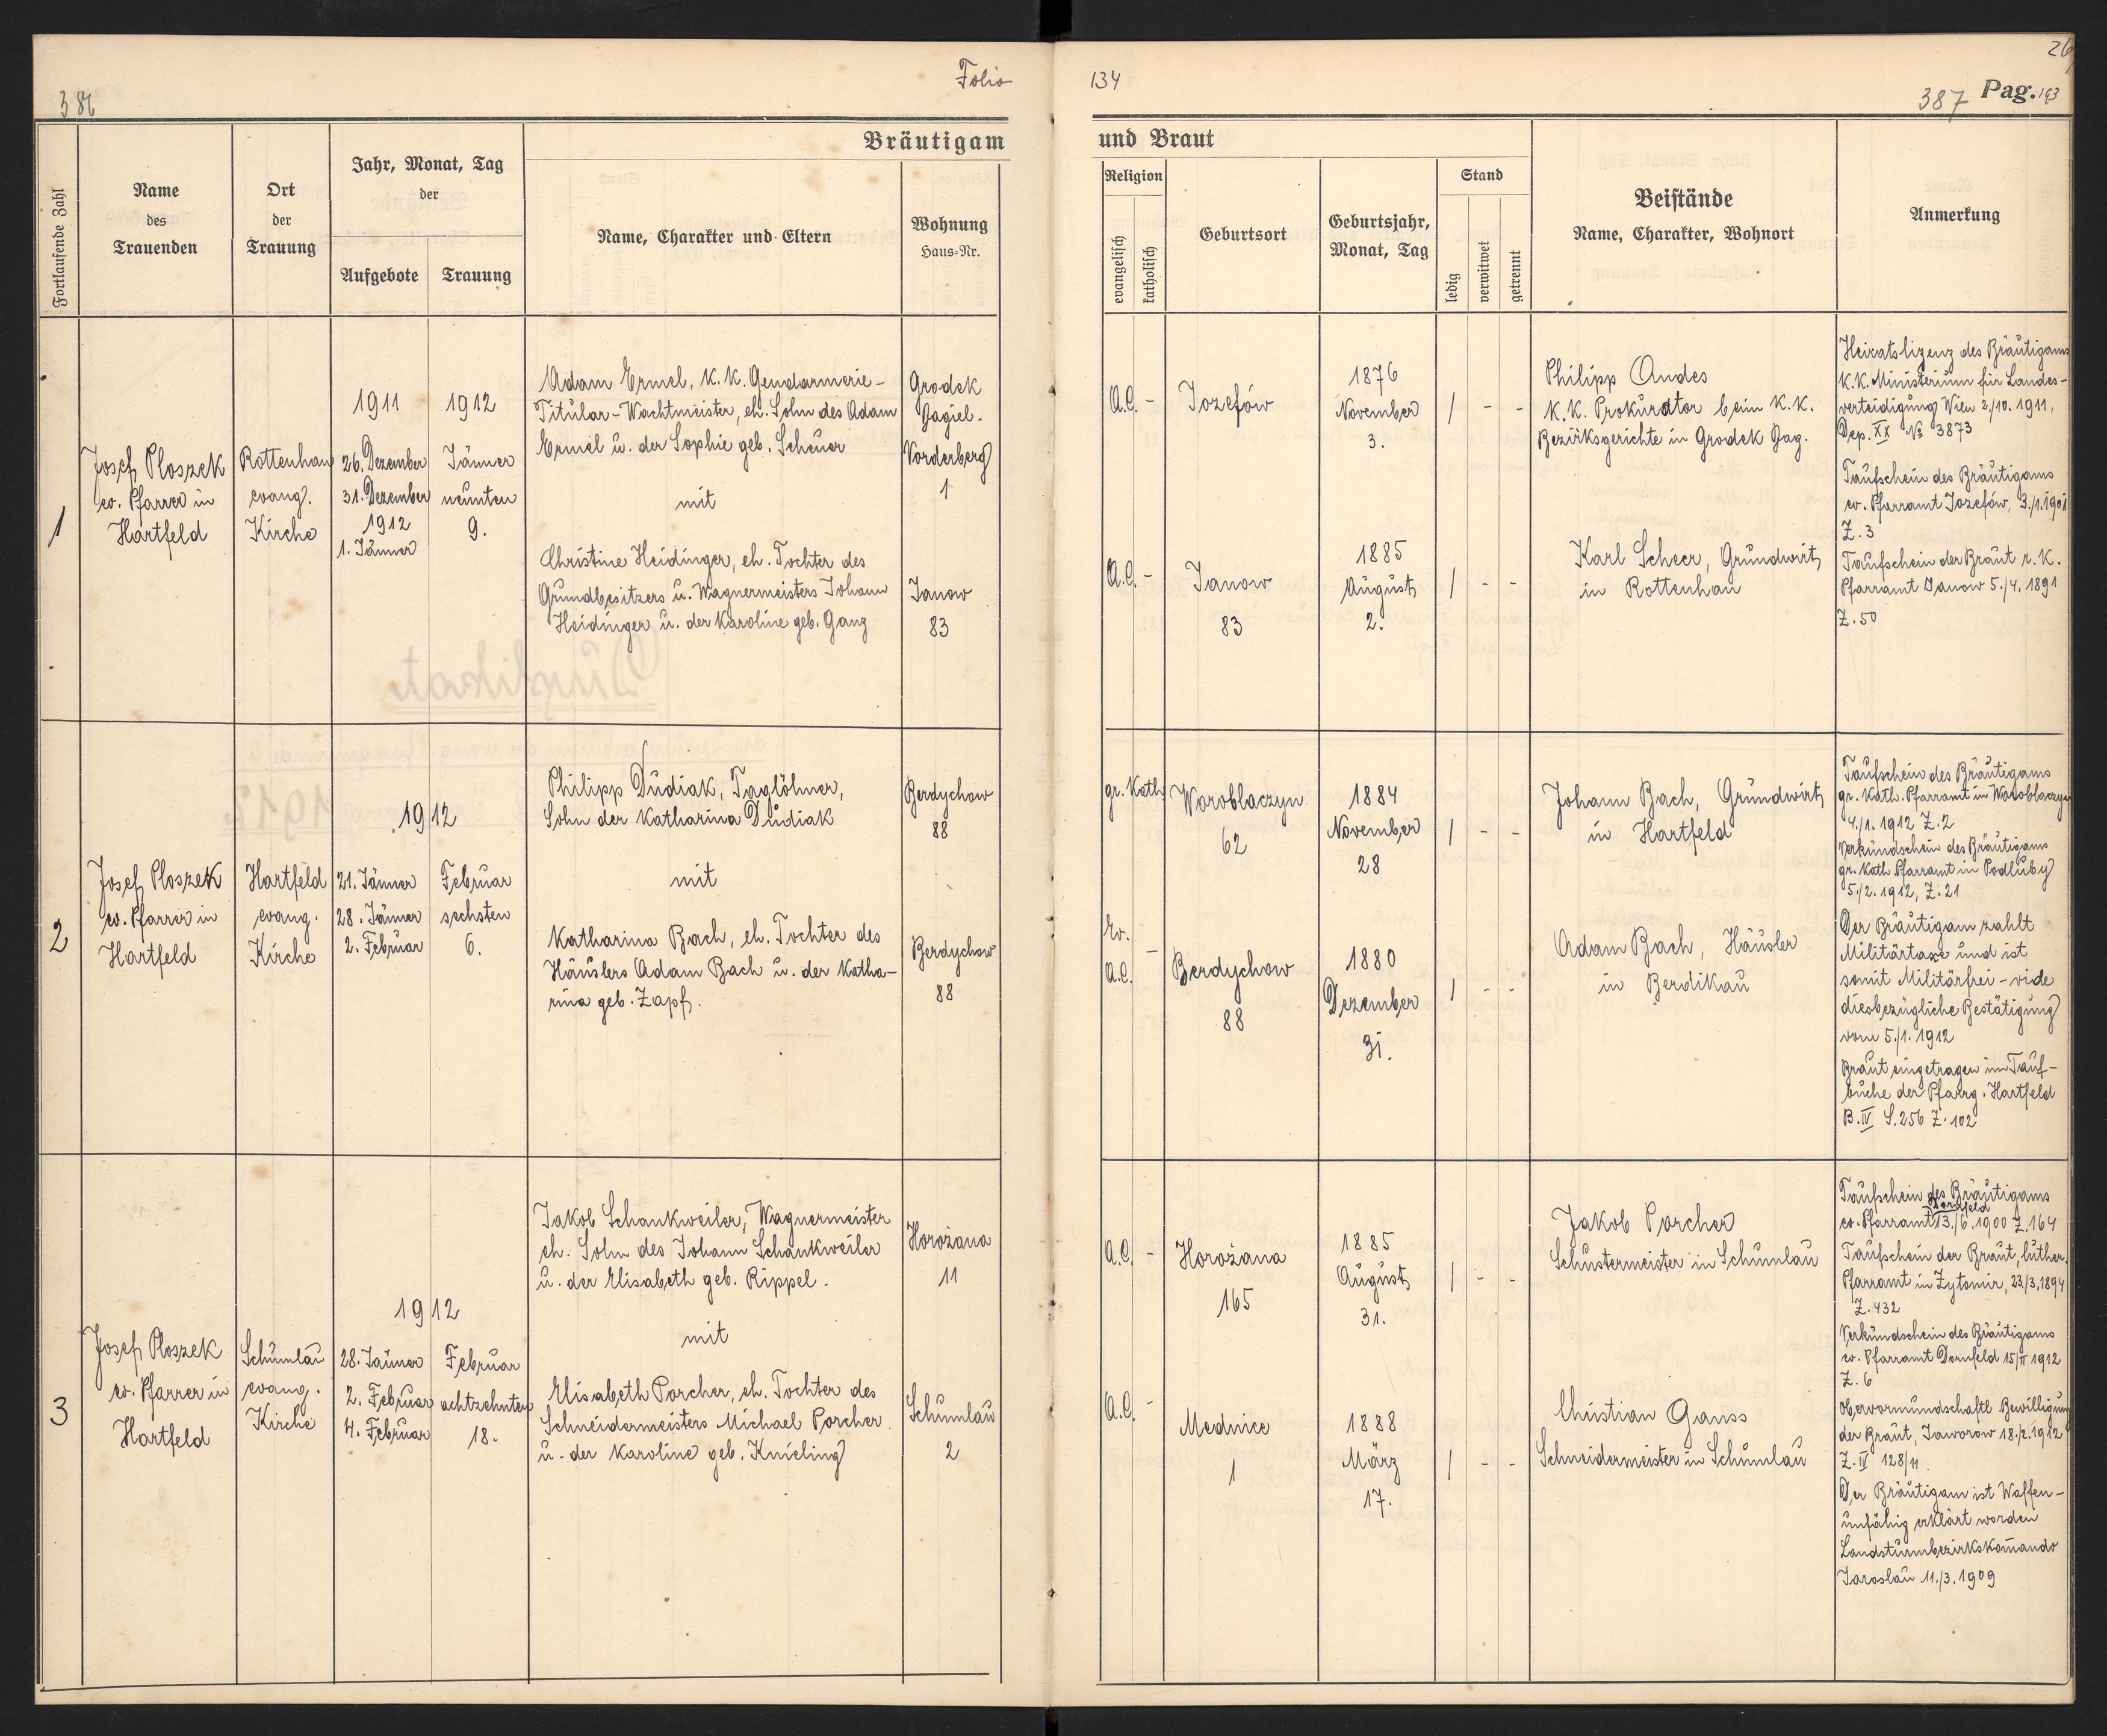 386
Folio
134
26
387 Pag. 193
Bräutigam
und Braut
Fortlaufende Zahl
Name
des
Trauenden
Ort
der
Trauung
Jahr, Monat, Tag
der
Aufgebote
Trauung
Name, Charakter und Eltern
Wohnung
Haus-Nr.
Religion
evangelisch
katholisch
Geburtsort
Geburtsjahr,
Monat, Tag
Stand
ledig
verwitwet
getrennt
Beistände
Name, Charakter, Wohnort
Anmerkung
1
Josef Ploszek
ev. Pfarrer in
Hartfeld
Rottenhan
evang.
Kirche
1911
26. Dezember
31. Dezember
1912
1. Jänner
1912
Jänner
neunten
9.
Adam Ermel, K.K. Gendarmerie-
Titular-Wachtmeister, eh. Sohn des Adam
Ermel u. der Sophie geb. Scheuer
mit
Christine Heidinger, eh. Tochter des
Grundbesitzers u. Wagnermeisters Johann
Heidinger u. der Karoline geb. Ganz
Grodek
Jagiel.
Vorderberg
1
Janow
83
A.C. -
Jozefów
1876
November
3.
/ - -
A.C. -
Janow
83
1885
August
2.
/ - -
Philipp Andes
K.K. Prokurator beim K.K.
Bezirksgerichte in Grodek Jag.
Karl Scheer, Grundwirt
in Rottenhan
Heiratslizenz des Bräutigams
K.K. Ministerium für Landes-
verteidigung Wien 2./10. 1911,
Dep. XX № 3873
Taufschein des Bräutigams
ev. Pfarramt Jozefów, 3./1.1901
Z. 3
Taufschein der Braut r. K.
Pfarramt Janow 5./4. 1891
Z. 50
2
Josef Ploszek
ev. Pfarrer in
Hartfeld
Hartfeld
evang.
Kirche
1912
21. Jänner
28. Jänner
2. Februar
Februar
sechsten
6.
Philipp Dudiak, Taglöhner,
Sohn der Katharina Dudiak
mit
Katharina Bach, eh. Tochter des
Häuslers Adam Bach u. der Katha-
rina geb. Zapf.
Berdychow
88
Berdychow
88
gr. Kath.
Woroblaczyn
62
1884
November
28
/ - -
Ev.
A.C. -
Berdychow
88
1880
Dezember
31.
/ - -
Johann Bach, Grundwirt
in Hartfeld
Adam Bach, Häusler
in Berdikau
Taufschein des Bräutigams
gr. Kath. Pfarramt in Woroblaczyn
4./1. 1912 Z. 2
Verkündschein des Bräutigams
gr. Kath Pfarramt in Podluby
5./2. 1912, Z. 21
Der Bräutigam zahlt
Militärtaxe und ist
somit Militärfrei - vide
diesbezügliche Bestätigung
vom 5./1. 1912
Braut eingetragen im Tauf-
buche der Pfarrg. Hartfeld
B. IV S. 256 Z. 102
3
Josef Ploszek
ev. Pfarrer in
Hartfeld
Schumlau
evang.
Kirche
1912
28. Jänner
2. Februar
4. Februar
Februar
achtzehnten
18.
Jakob Schankweiler, Wagnermeister
eh. Sohn des Johann Schankweiler
u. der Elisabeth geb. Rippel.
mit
Elisabeth Porcher, eh. Tochter des
Schneidermeisters Michael Porcher
u. der Karoline geb. Knieling
Horożana
11
Schumlau
2
A.C. -
Horożana
165
1885
August
31.
/ - -
A.C. -
Mednice
1
1888
März
17.
/ - -
Jakob Porcher
Schustermeister in Schumlau
Christian Gauss
Schneidermeister in Schumlau
Taufschein des Bräutigams
Dornfeld
ev. Pfarramt 13./6. 1900 Z. 164
Taufschein der Braut, luther.
Pfarramt in Zytomir, 23/3. 1894
Z. 432
Verkündschein des Bräutigams
ev. Pfarramt Dornfeld 15/II 1912
Z. 6
Obervormundschaftl Bewilligung
der Braut, Jaworow 18./2. 1912
Z. IV 128/11
Der Bräutigam ist Waffen-
unfähig erklärt worden
Landsturmbezirkskom̄ando
Jaroslau 11./3. 1909